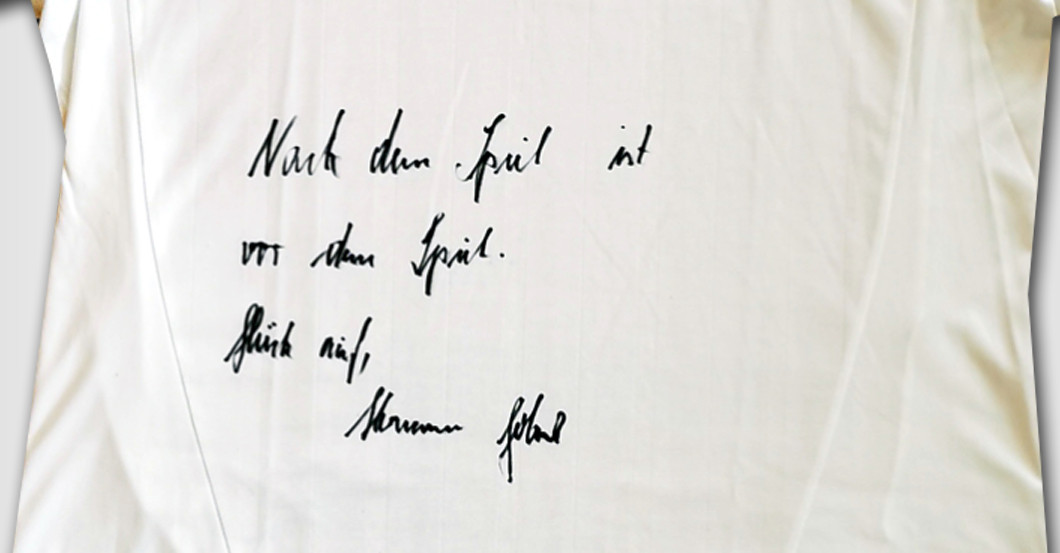 Nach dem Spiel ist
vor dem Spiel.
Glück auf,
Hermann